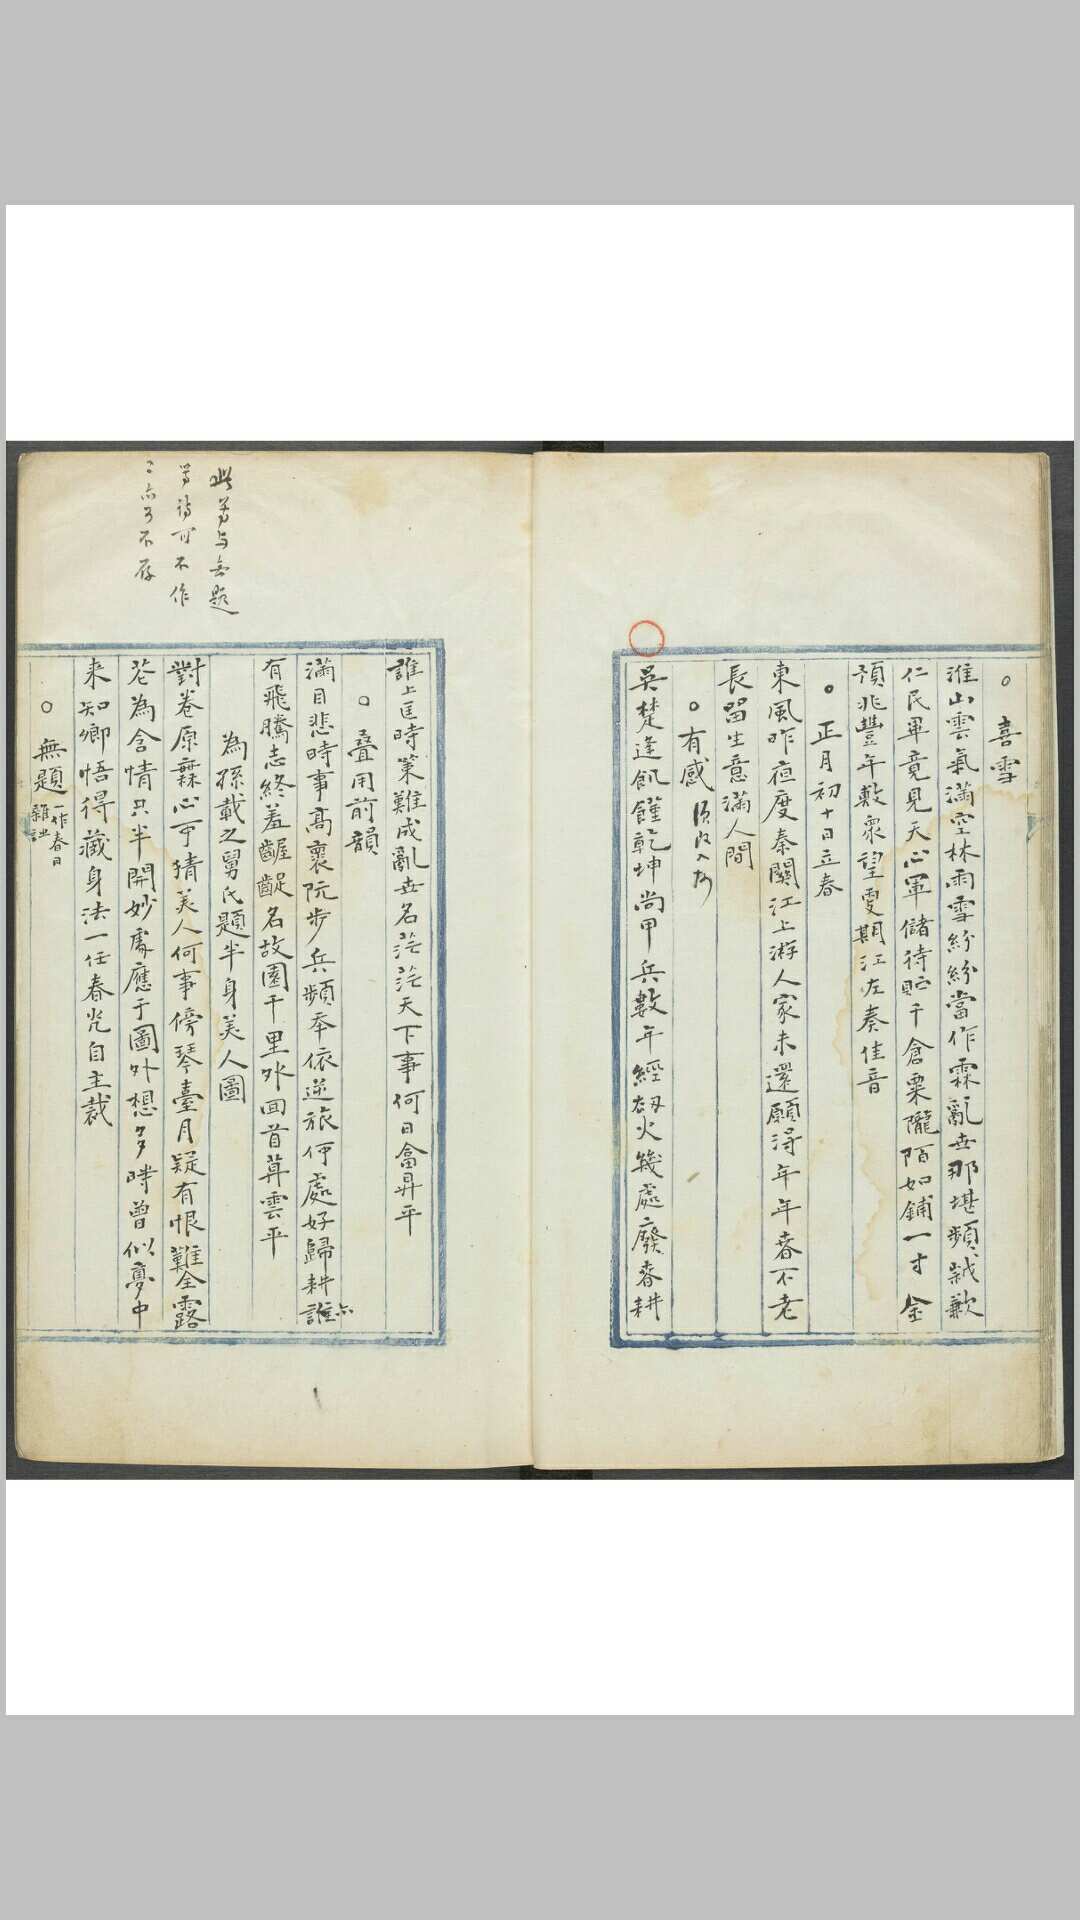 喜雪
淮山雲氣滿空林雨雪紛紛當作霖亂世那堪頻歲歉
仁民軍竟見天心軍儲待貯千倉粟隴陌如鋪一寸金
預兆豐年數眾望更期江左奏佳音
正月初十日立春
東風昨夜度秦關江上游人家未還願得年年春不老
長留生意滿人間
有感
吳楚逢飢饉乾坤尚甲兵數年經劫火幾處廢春耕
誰上匡時策難成亂世名茫茫天下事何日會昇平
疊用前韻
滿目悲時事高裏阮步兵頻奉依逆旅何處好歸耕誰亦
有飛騰志終羞齷齪名故園千里外回首莫雲平
此首与無題
等詩可不作
亦可不存
為孫載之舅氏題半身美人圖
對卷原無心可猜美人何事傍琴臺月疑有恨難全露
花為含情只半開妙處應于圖外想多時曾似夢中
来知卿悟得藏身法一任春光自主裁
無題一作春日雜詠